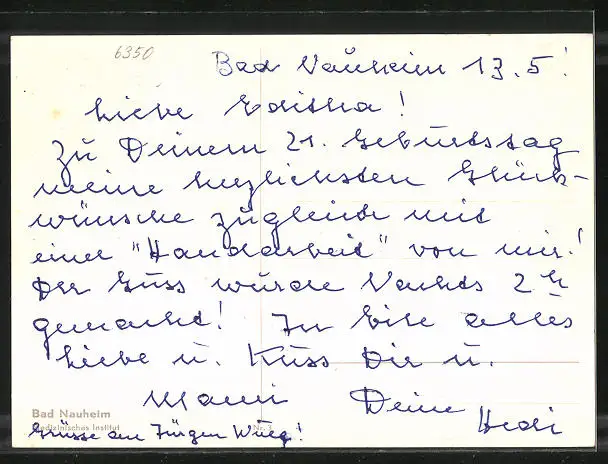 6350
Bad Nauheim 13.5!
Liebe Editha!
Zu Deinem 21. Geburtstag
meine herzlichsten Glück-
wünsche zugleich mit
einer "Handarbeit" von mir!
Der Guss wurde Nachts 2 h
gemacht! In Eile alles
Liebe u. Kuss Dir u.
Mami Deine
Hedi
Bad Nauheim
Medizinisches Institut Nr. 3
Grüsse an Jürgen